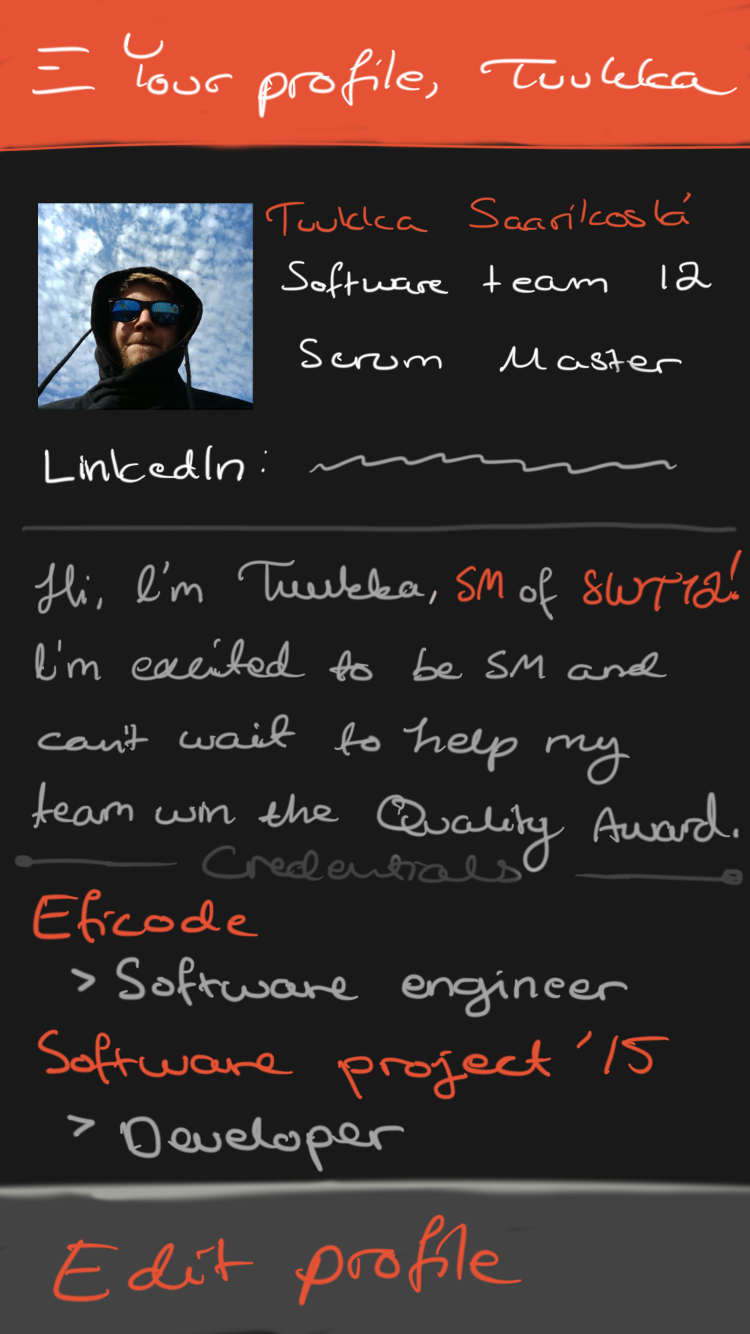 Your profile, Tuukka
Tuukka Saarikoski
Software team 12
Scrum Master
LinkedIn:
Hi, I'm Tuukka, SM of SWT12!
I'm excited to be SM and
can't wait to help my
team win the Quality Award.
Credentials
Eficode
> Software engineer
Software project '15
> Developer
Edit profile